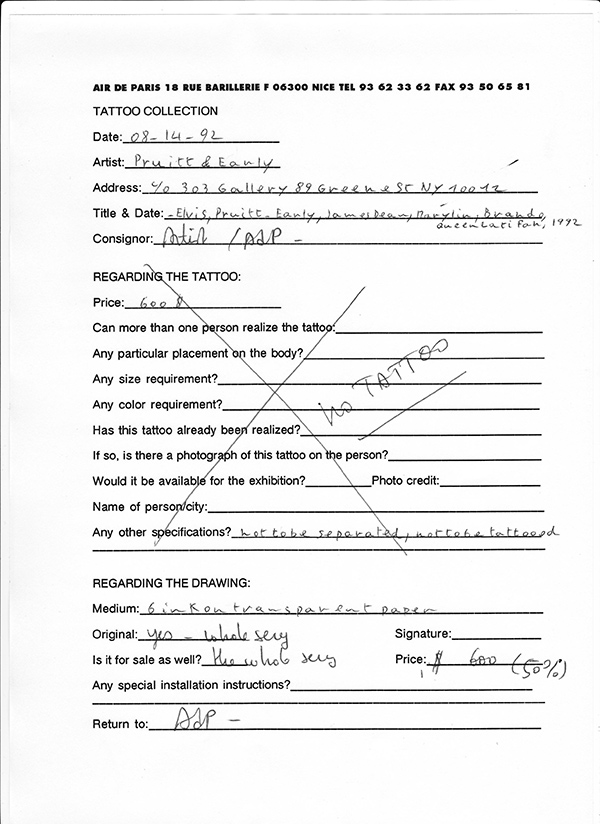 AIR DE PARIS 18 RUE BARILLERIE F 06300 NICE TEL 93 62 33 62 FAX 93 50 65 81
TATTOO COLLECTION
Date: 08-14-92
Artist: Pruitt & Early
Address: c/o 303 Gallery 89 Greene St NY 10012
Title & Date: Elvis, Pruitt-Early, James Dean, Marylin, Brando,
Queen Latifah, 1992
Consignor: Artist / AdP -
REGARDING THE TATTOO:
Price: 600 $
Can more than one person realize the tattoo:
Any particular placement on the body?
Any size requirement?
Any color requirement?
no TATTOO
Has this tattoo already been realized?
If so, is there a photograph of this tattoo on the person?
Would it be available for the exhibition? Photo credit:
Name of person/city:
Any other specifications? not to be separated, not to be tattooed
REGARDING THE DRAWING:
Medium: 6 ink on transparent paper
Original: yes - whole sery Signature:
Is it for sale as well? the whole sery Price: $ 600 (50%)
Any special installation instructions?
Return to: AdP -